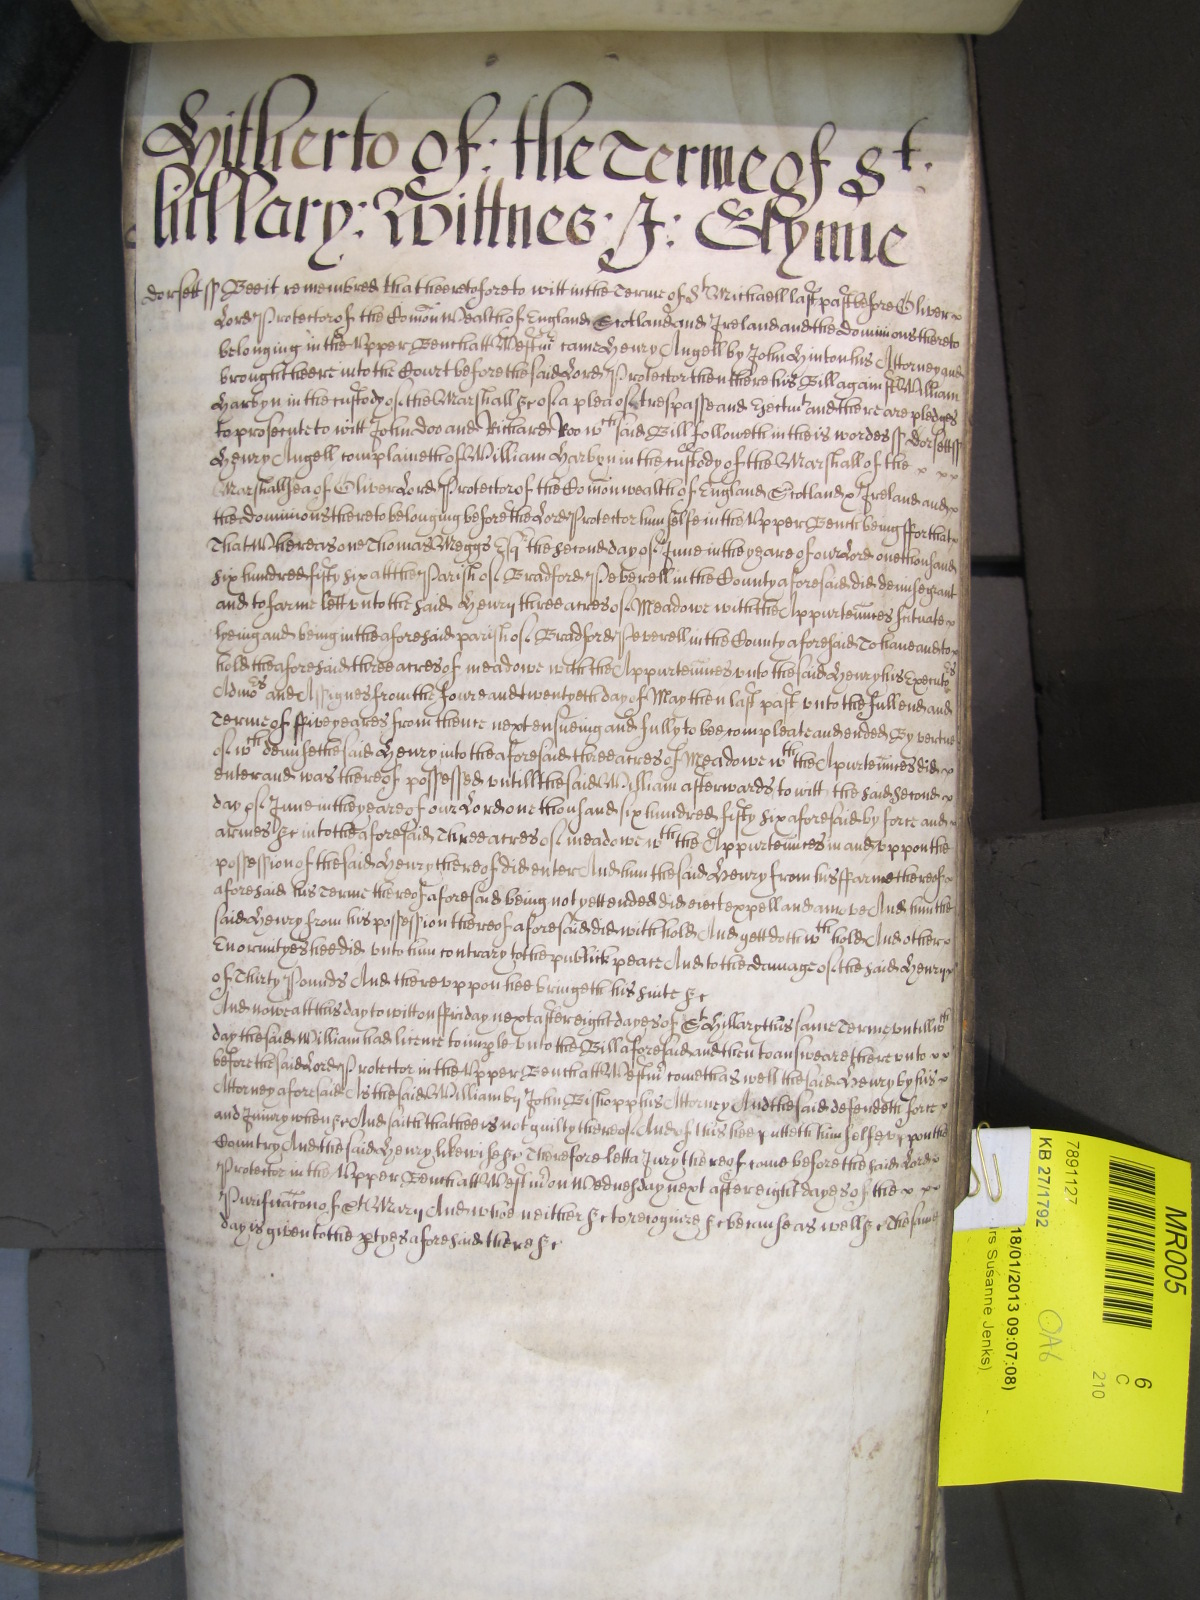 Hitherto of: the Terme of St.
hillary: Wittnes: J: Glynne
Dorsett ss Bee it remembred that heeretofore to witt in the Terme of St Michaell last past before Oliver
Lord Protector of the Comon Wealth of England Scotland and Ireland and the dominions thereto
belonging in the Upper Bench att Westmr came Henry Angell by John Hinton his Attorney and
brought heere into the Court before the said Lord Protector then there his Bill against William
Harbyn in the custody of the Marshall &c of a plea of trespasse and Eectmt and there are pledges
to prosecute to witt John Doo and Richard Roo wch said Bill followeth in theis wordes ss Dorsett ss
Henry Angell complaineth of William Harbyn in the custody of the Marshall of the
Marshallsea of Oliver Lord Protector of the Comonwealth of England Scotland Ireland and
the Dominions thereto belonging before the Lord Protector himselfe in the Upper Bench being ffor that
That Whereas one Thomas Meggs Esqr the second day of June in the yeare of our Lord one thousand
six hundred fifty six att the Parish of Bradford Peverell in the County aforesaid did demise grant
and to farme lett unto the said Henry three acres of Meadowe with the Appurtennces scituate
lyeing and being in the aforesaid parish of Bradford Peverell in the County aforesaid To have and to
hold the aforesaid three acres of meadowe with the Appurtennces unto the said Henry his Executors
Admrs and Assignes from the foure and twentyeth day of May then last past unto the full end and
Terme of ffive yeares from thence next ensueing and fully to bee compleate and ended By vertue
of wch demise the said Henry into the aforesaid three acres of Meadowe wth the Apurtennces did
enter and was thereof possessed untill the said William afterwards to witt the said second
day of June in the yeare of our Lord one thousand six hundred fifty six aforesaid by force and
armes &c into the aforesaid Three acres of meadowe wth the Appurtennces in and uppon the
possession of the said Henry thereof did enter And him the said Henry from his ffarme thereof
aforesaid his Terme thereof aforesaid being not yett ended did eiect expell and amove And him the
said Henry from his possession thereof aforesaid did withhold And yett doth wthhold And other
Enormityes hee did unto him contrary to the publick peace And to the damage of the said Henry
of Thirty Pounds And thereuppon hee bringeth his suite &c
And nowe att this day to witt on ffriday next after eight dayes of St Hillary this same Terme untill wch
day the said William had licence to imple unto the Bill aforesaid and then to answeare thereunto
before the said Lord Protector in the Upper Bench att Westmr cometh as well the said Henry by his
Attorney aforesaid As the said William by John Bishopp his Attorney And the said defendeth force
and Iniury when &c And saith that hee is not guilty thereof And of this hee putteth himselfe uppon the
Country And the said Henry likewise &c Therefore lett a Jury thereof come before the said Lord
Protector in the Upper Bench att Westmr on Wednesday next after eight dayes of the
Purificacon of St Mary And who neither &c to recognize &c because as well &c The same
day is given to the ptyes aforesaid there &c
MR005
6
C
210
7891127
KB 27/1792
OA6
18/01/2013 09:07:08)
rs Susanne Jenks)